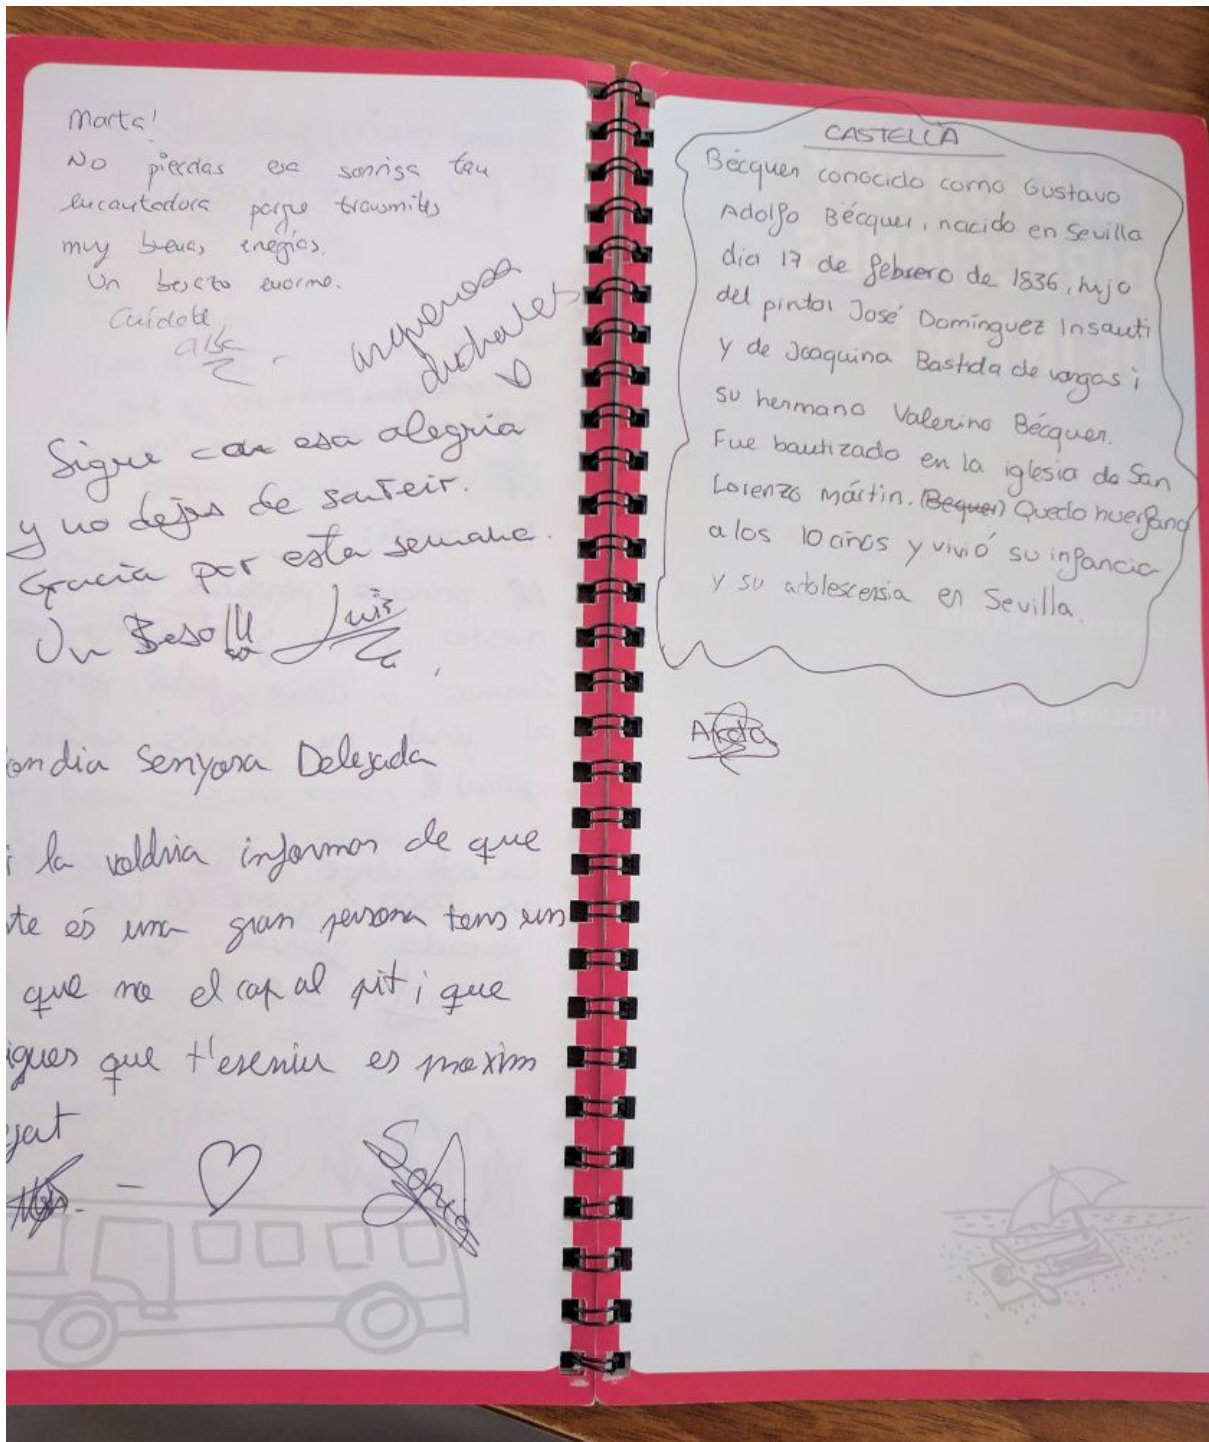 Marta!
No pierdas esa sonrisa tan
encantadora porque transmites
muy buenas energías.
Un besazo enorme.
Cuídate
Alba
Sigue con esa alegría
y no dejes de sonreir.
Gracia por esta semana.
Un Beso!!! Luis
ondia Senyora Delegada
i la voldria informar de que
te és una gran persona tens un
que no el cap al pit i que
igues que t'estniu es maxim
jat
Sonia
CASTELLÀ
Bécquer conocido como Gustavo
Adolfo Bécquer, nacido en Sevilla
dia 17 de febrero de 1836, hijo
del pintor José Domínguez Insausti
y de Joaquina Bastida de vargas i
su hermano Valerino Bécquer.
Fue bautizado en la iglesia de San
Lorenzo mártin. (Bequer) Quedo huerfano
a los 10 años y vivió su infancia
y su adolescensia en Sevilla.